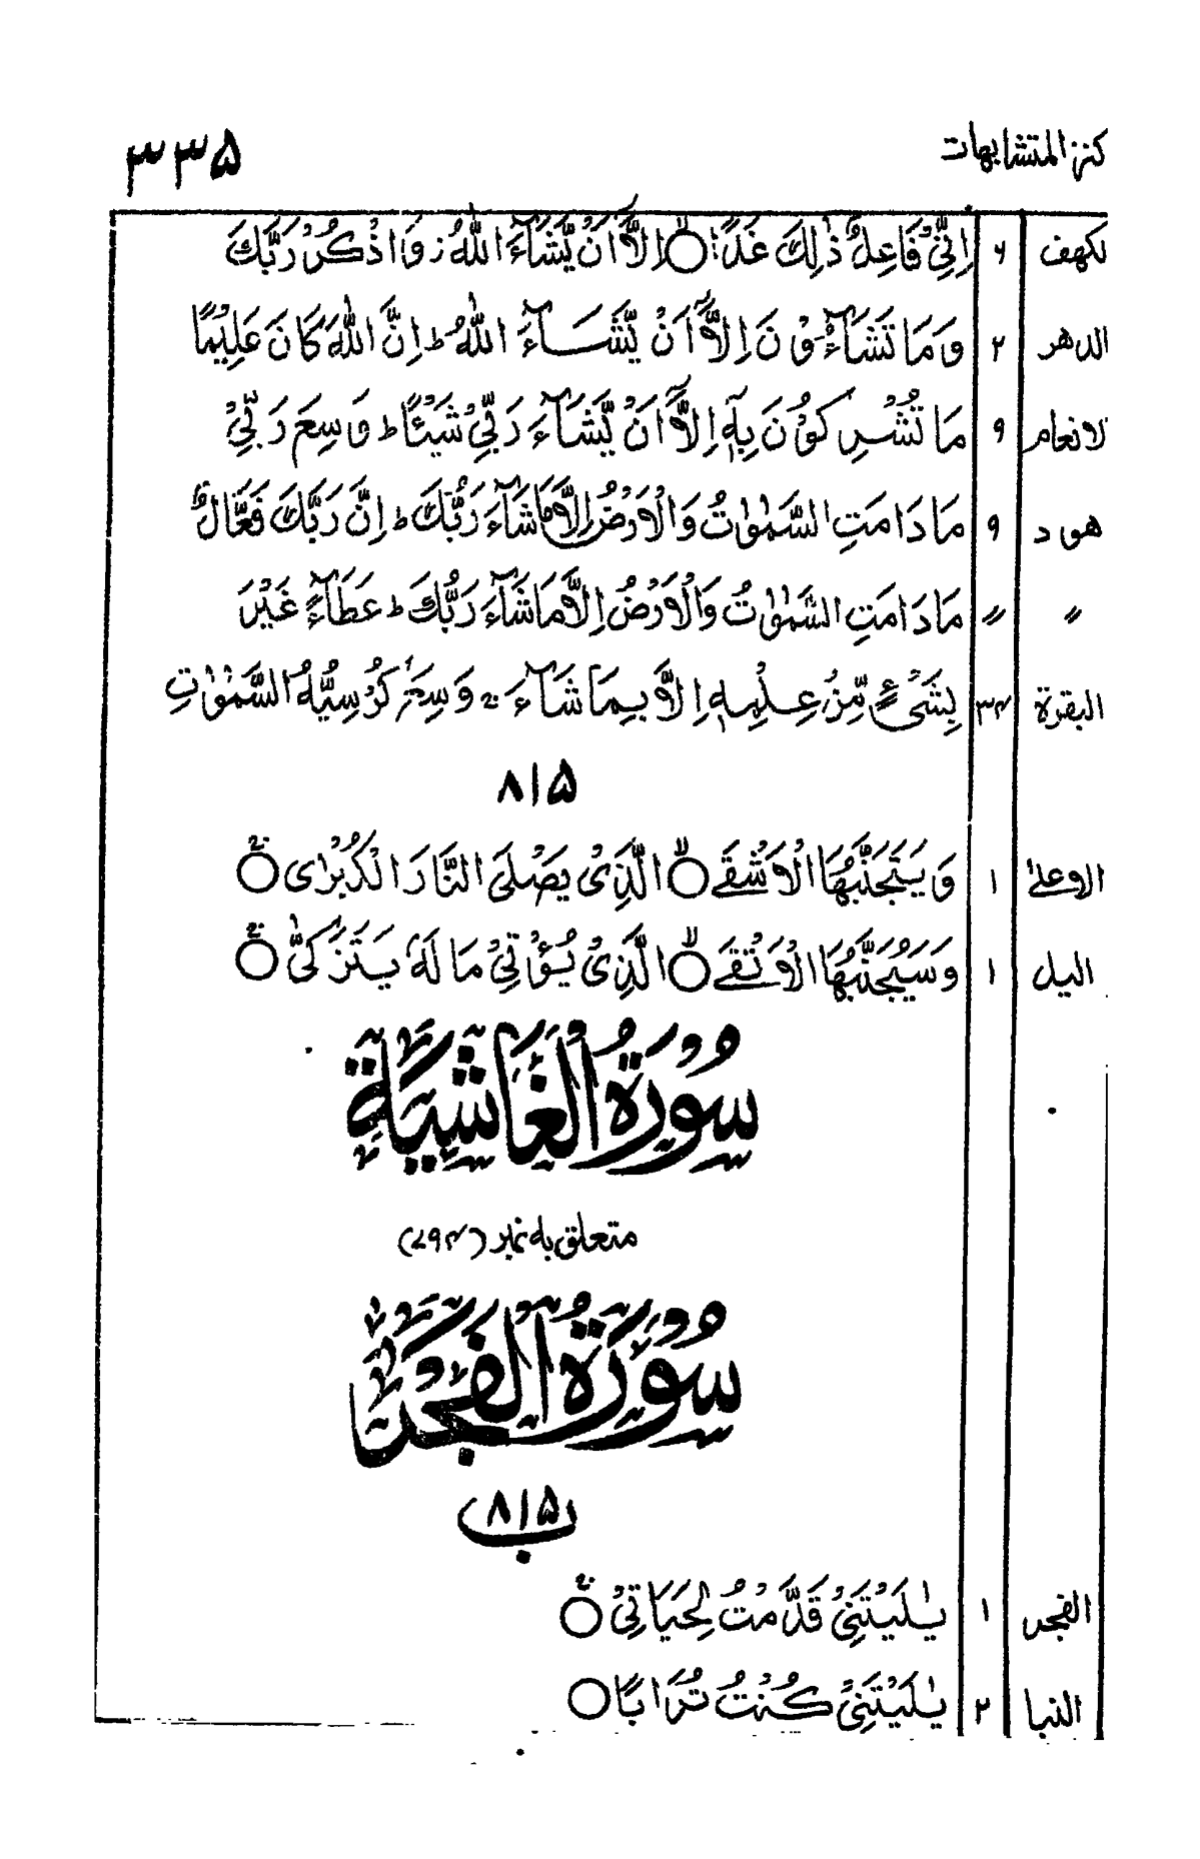 كنز المتشابهات ۳۳۵
لكهف ۶ اِنِّىْ فَاعِلٌ ذٰلِكَ غَدًا ۙ○ اِلَّاۤ اَنْ يَّشَآءَ اللّٰهُ ز وَاذْكُرْ رَّبَّكَ
الدهر ۲ وَمَا تَشَآءُوْنَ اِلَّاۤ اَنْ يَّشَآءَ اللّٰهُ ط اِنَّ اللّٰهَ كَانَ عَلِيْمًا
لانعام ۹ مَا تُشْرِكُوْنَ بِهٖۤ اِلَّاۤ اَنْ يَّشَآءَ رَبِّىْ شَيْئًا ط وَسِعَ رَبِّىْ
هود ۹ مَا دَامَتِ السَّمٰوٰتُ وَالْاَرْضُ اِلَّا مَا شَآءَ رَبُّكَ ط اِنَّ رَبَّكَ فَعَّالٌ
〃 〃 مَا دَامَتِ السَّمٰوٰتُ وَالْاَرْضُ اِلَّا مَا شَآءَ رَبُّكَ ط عَطَآءً غَيْرَ
البقرة ۳۴ بِشَىْءٍ مِّنْ عِلْمِهٖۤ اِلَّا بِمَا شَآءَ ج وَسِعَ كُرْسِيُّهُ السَّمٰوٰتِ
۸۱۵
الاعلىٰ ۱ وَيَتَجَنَّبُهَا الْاَشْقَى ۙ○ الَّذِىْ يَصْلَى النَّارَ الْكُبْرٰى ○ۚ
اليل ۱ وَسَيُجَنَّبُهَا الْاَتْقَى ۙ○ الَّذِىْ يُؤْتِىْ مَا لَهٗ يَتَزَكّٰى ○ۚ
سُوْرَةُ الْغَاشِيَةِ
متعلق به نمبر (۷۹۴)
سُوْرَةُ الْفَجْرِ
۸۱۵
ب
الفجر ۱ يٰلَيْتَنِىْ قَدَّمْتُ لِحَيَاتِىْ ○ۚ
النبا ۲ يٰلَيْتَنِىْ كُنْتُ تُرَابًا ○